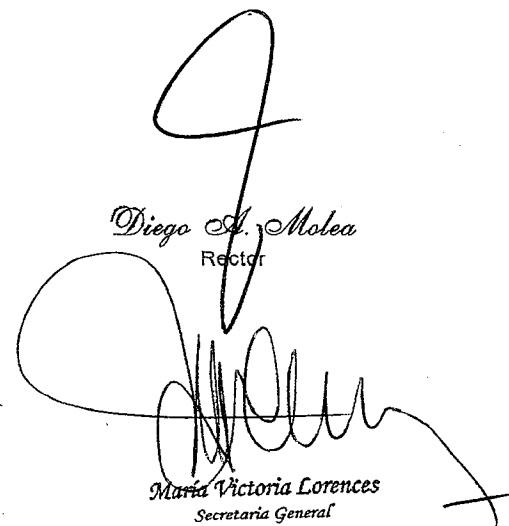 Diego A. Molea
Rector
María Victoria Lorences
Secretaria General